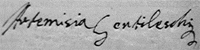 Artemisia Gentileschi